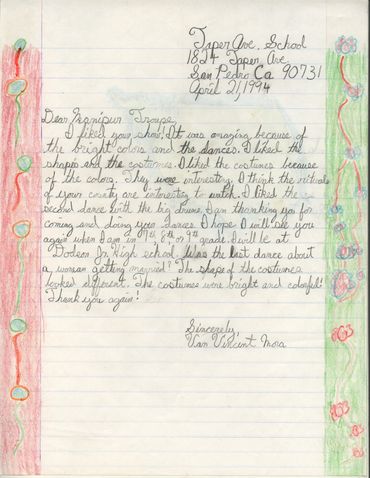 Taper Ave. School
1824 Taper Ave.
San Pedro Ca 90731
April 21, 1994
Dear Ieznipun Troupe,
I liked your show! It was amazing because of
the bright colors and the dances. I liked the
shapes and the costumes. I liked the costumes because
of the colors. They were interesting. I think the rituals
of your country are interesting to watch. I liked the
second dance with the big drums. I am thanking you for
coming and doing your dances. I hope I will see you
again when I am in 7th, 8th, or 9th grade. I will be at
Dodson Jr. High school. Was the last dance about
a woman getting married? The shape of the costumes
looked different. The costumes were bright and colorful!
Thank you again!
Sincerely,
Van Vincent Mora